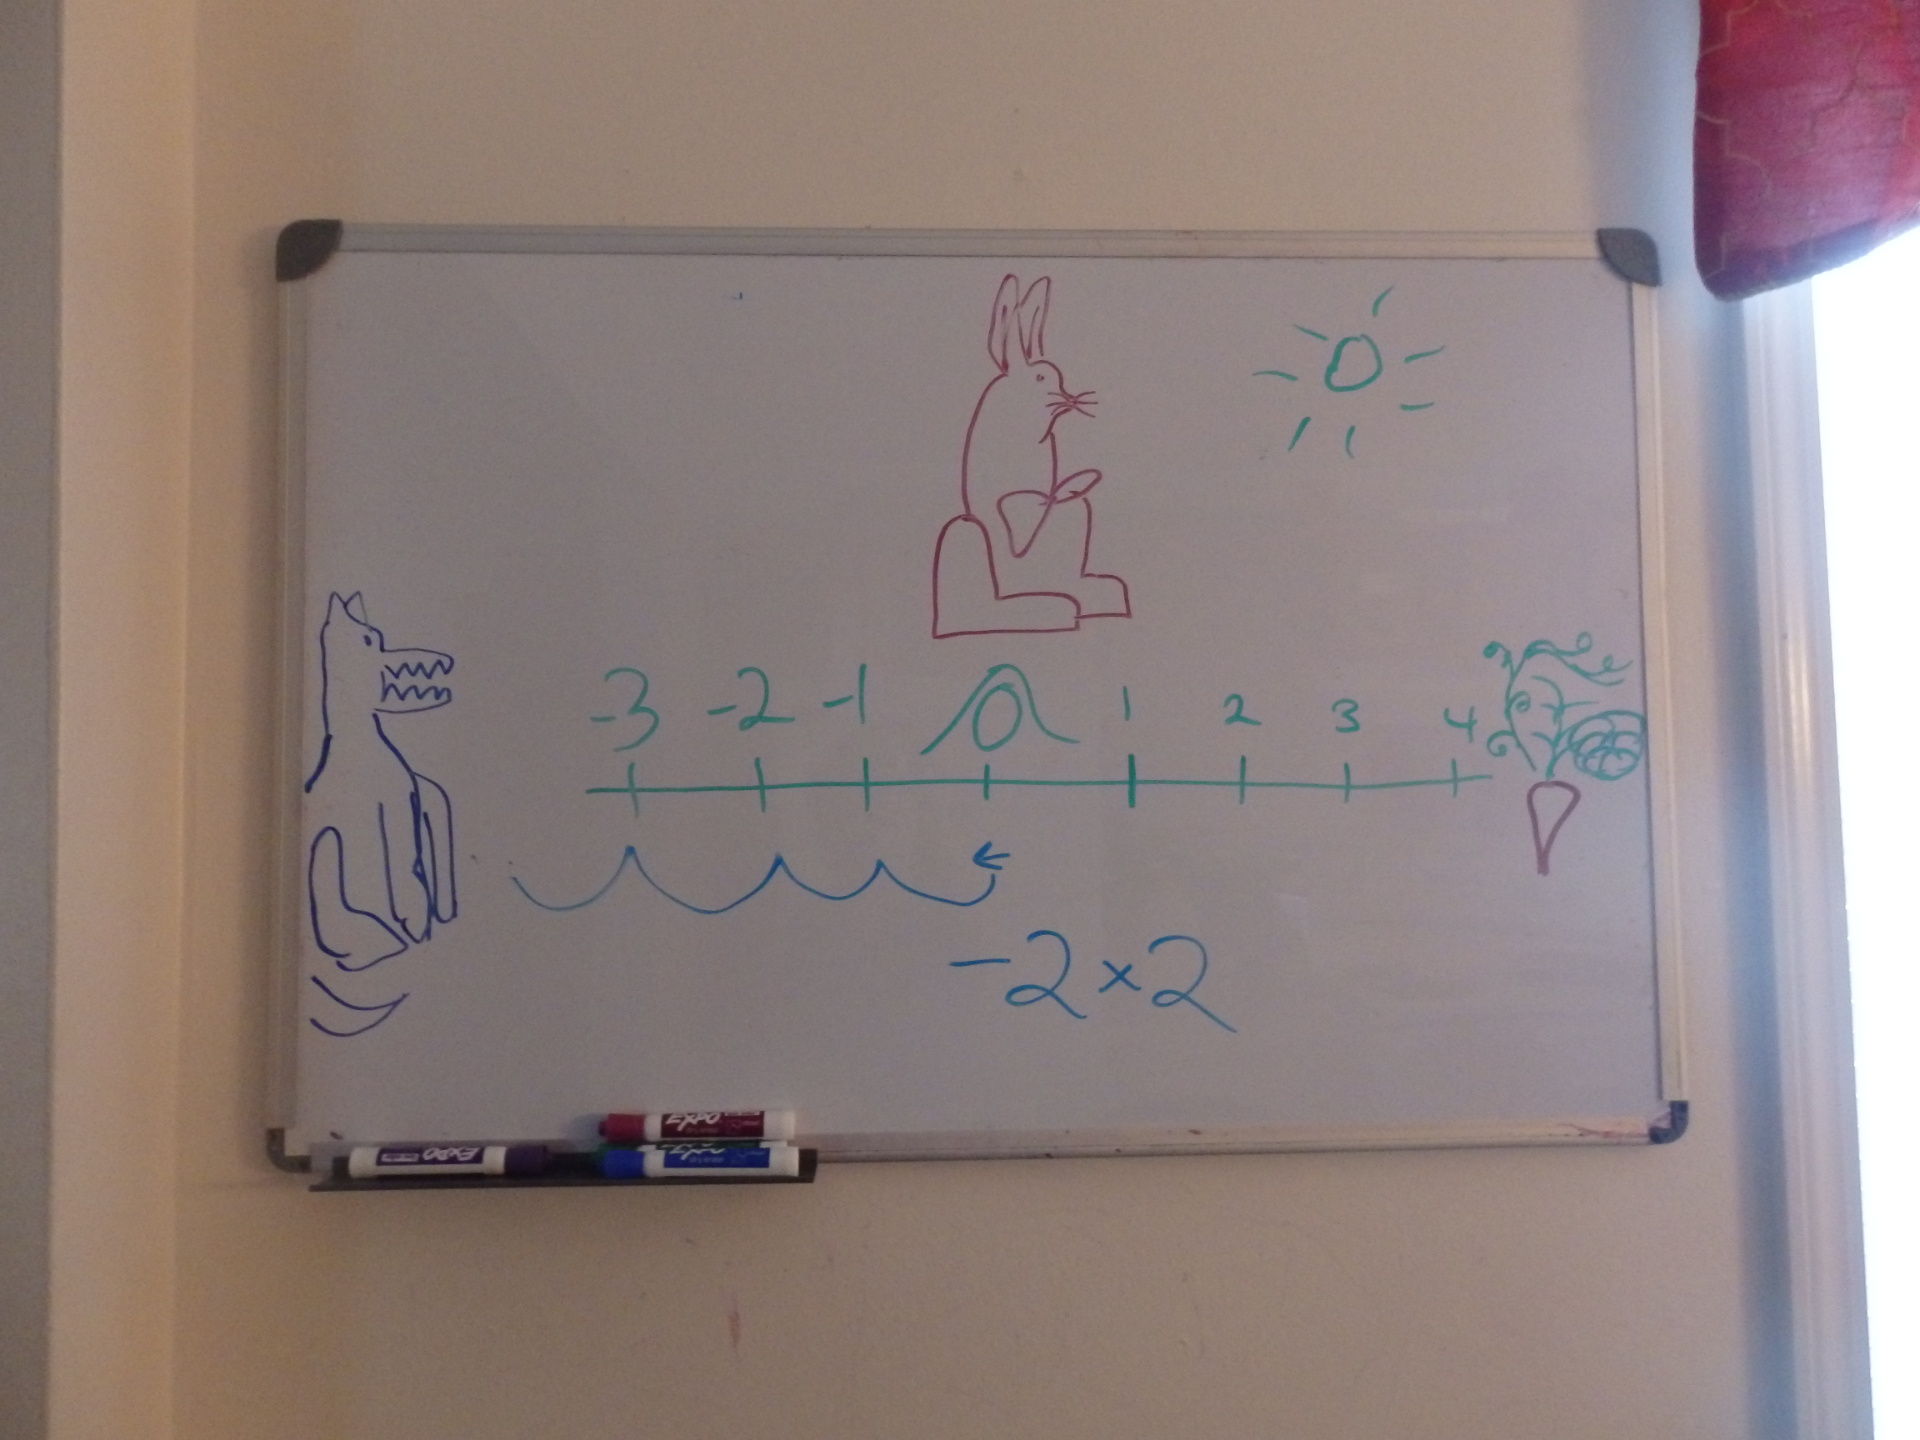 -3 -2 -1 0 1 2 3 4
-2 × 2
EXPO
EXPO
EXPO